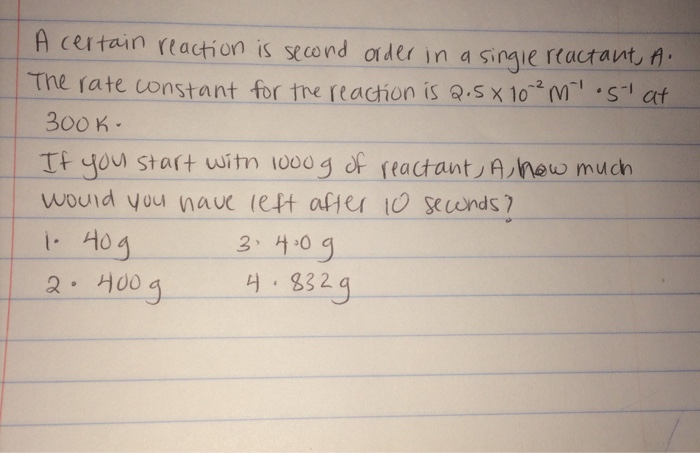 A certain reaction is second order in a single reactant, A.
The rate constant for the reaction is 2.5 x 10⁻² M⁻¹ • s⁻¹ at
300K.
If you start with 1000g of reactant, A, how much
would you have left after 10 seconds?
1. 40g 3. 4.0 g
2. 400g 4. 832g